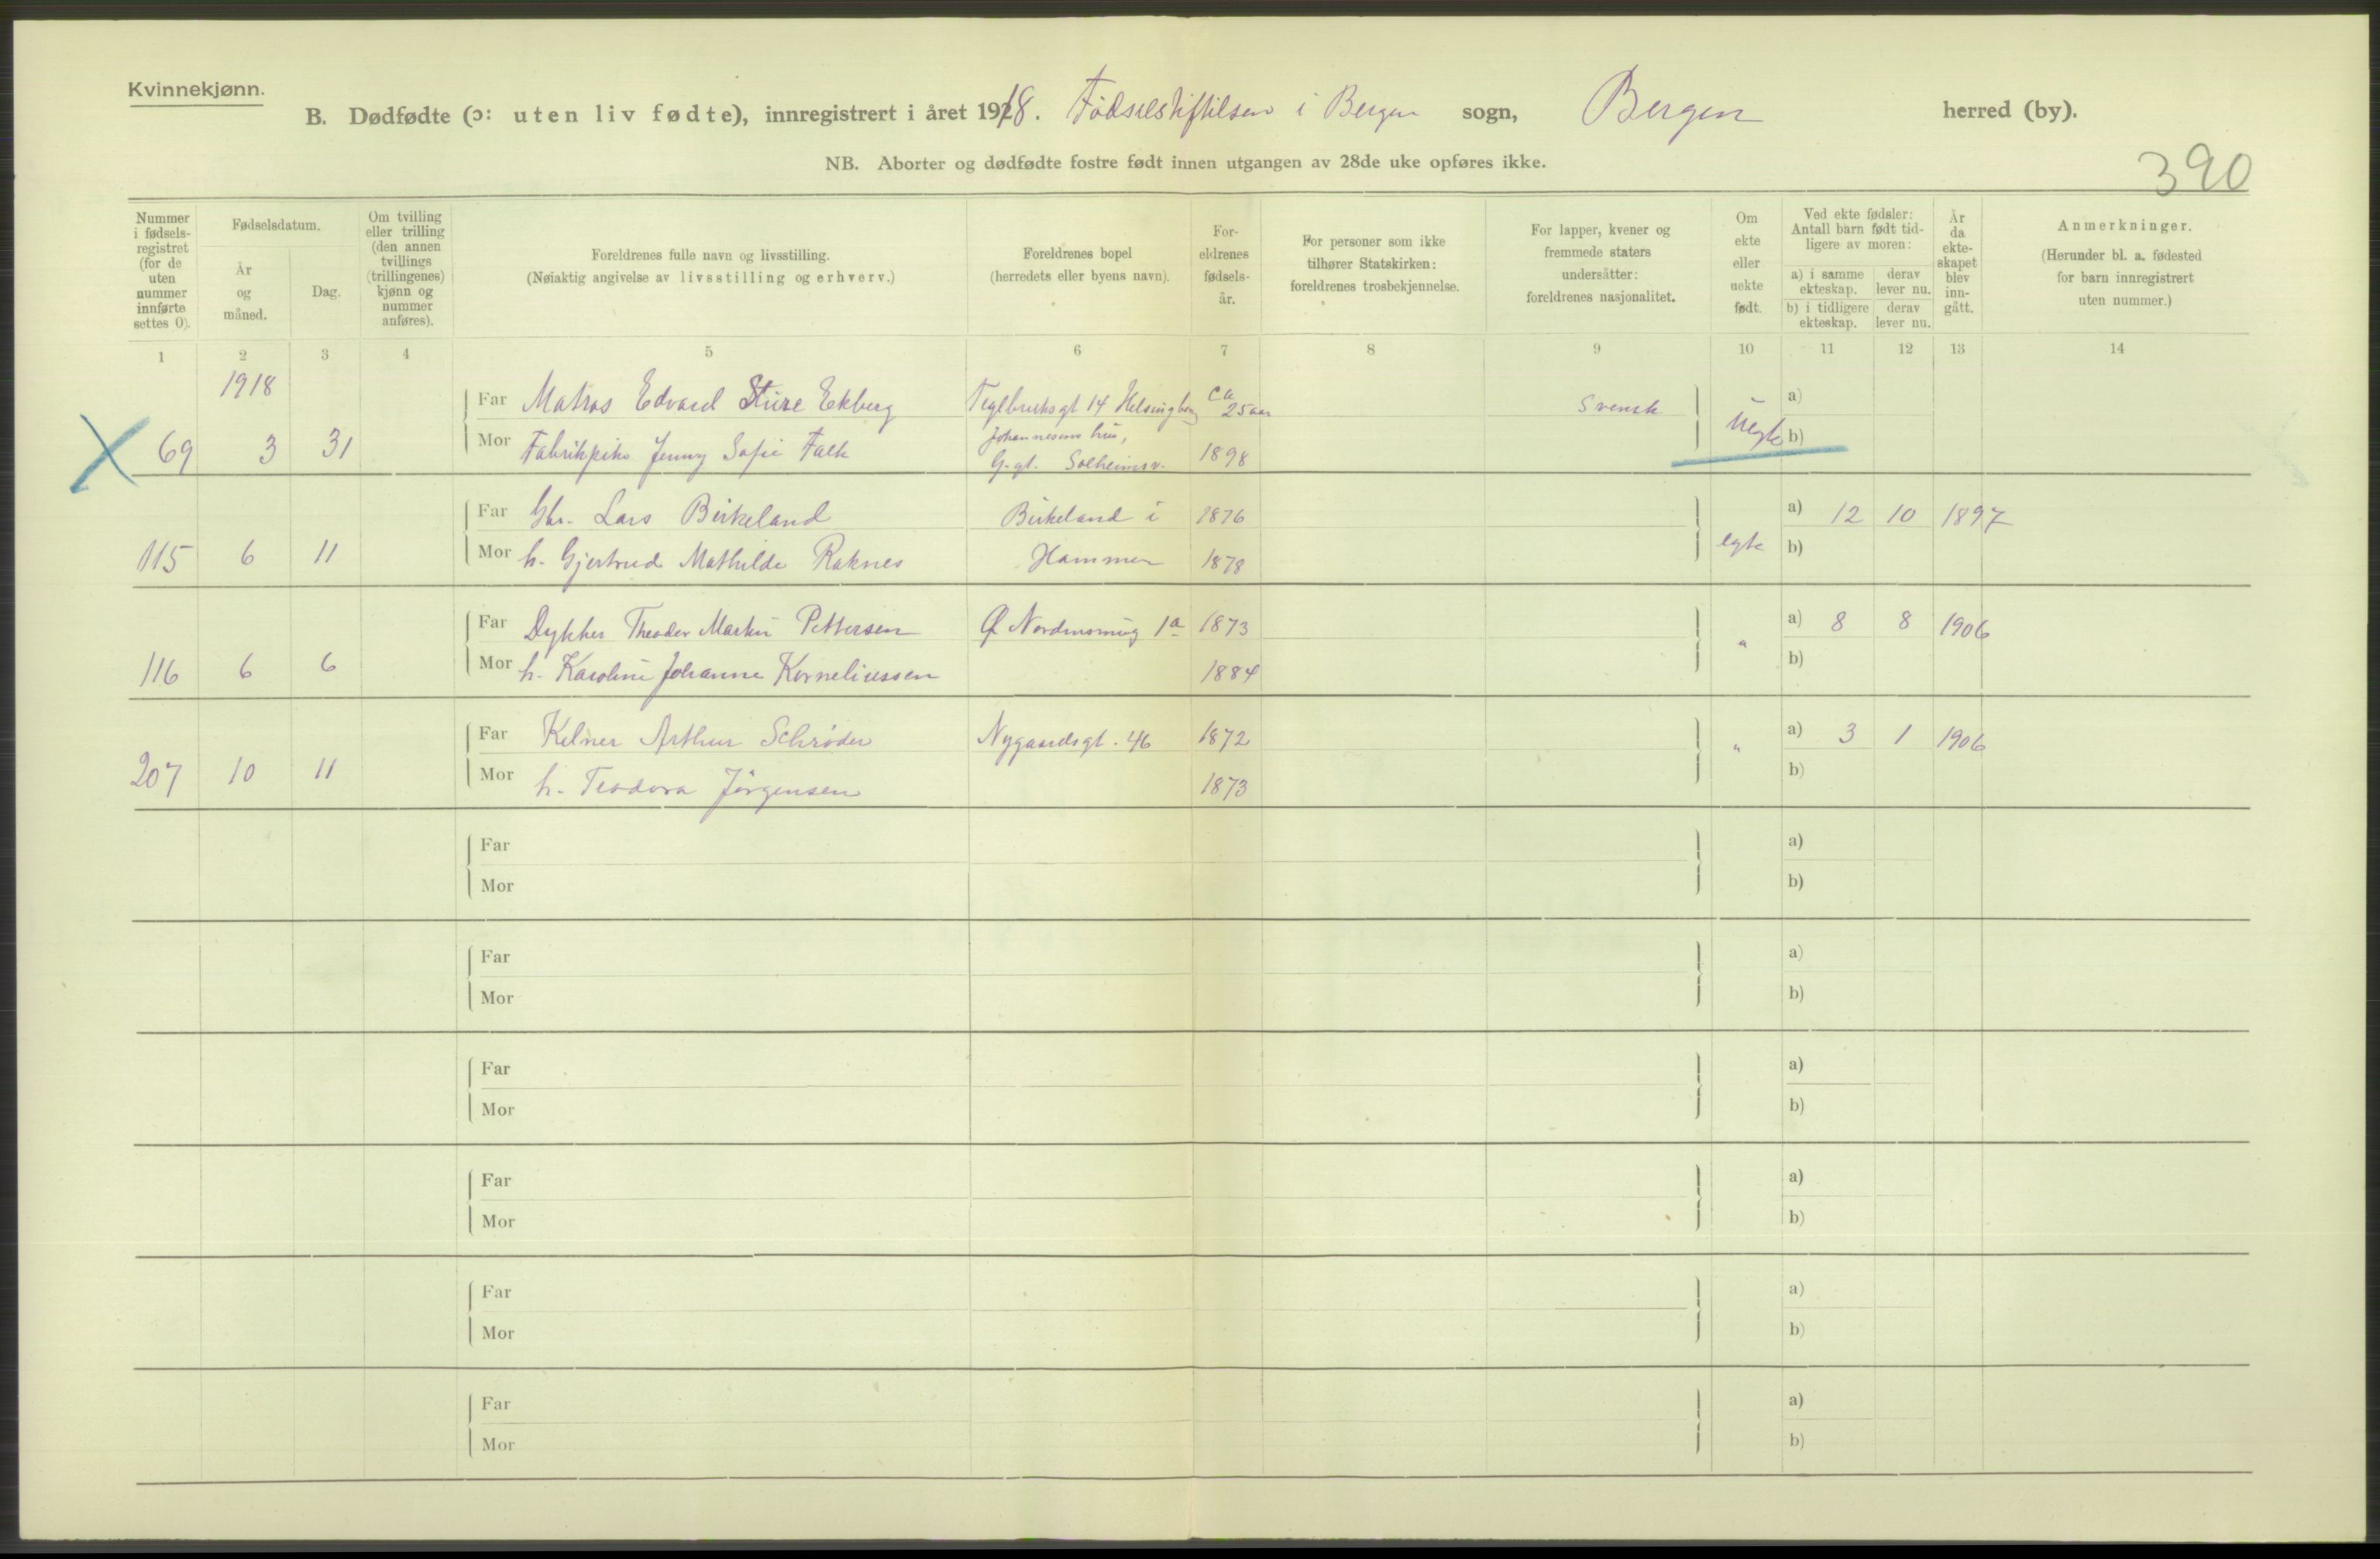 Kvinnekjønn.
B. Dødfødte (ɔ: uten liv fødte), innregistrert i året 1918. Fødselsstiftelsen i Bergen sogn, Bergen herred (by).
NB. Aborter og dødfødte fostre født innen utgangen av 28de uke opføres ikke.
390
Nummer i fødsels-registret (for de uten nummer innførte settes 0).
Fødselsdatum.
År og måned.
Dag.
Om tvilling eller trilling (den annen tvillings (trillingenes) kjønn og nummer anføres).
Foreldrenes fulle navn og livsstilling.
(Nøiaktig angivelse av livsstilling og erhverv.)
Foreldrenes bopel
(herredets eller byens navn).
For-eldrenes fødsels-år.
For personer som ikke tilhører Statskirken: foreldrenes trosbekjennelse.
For lapper, kvener og fremmede staters undersåtter: foreldrenes nasjonalitet.
Om ekte eller uekte født.
Ved ekte fødsler: Antall barn født tid-ligere av moren:
a) i samme ekteskap. derav lever nu.
b) i tidligere ekteskap. derav lever nu.
År da ekte-skapet blev inn-gått.
Anmerkninger.
(Herunder bl. a. fødested for barn innregistrert uten nummer.)
1 2 3 4 5 6 7 8 9 10 11 12 13 14
1918
Far Matros Edvard Sture Ekberg Teglbruksgt 14 Helsingborg ca 25 aar Svensk a)
69 3 31 Mor Fabrikpike Jenny Sofie Falk Johannesens hus, G.gt. Solheimsv. 1898 Uegte b)
Far Gbr. Lars Birkeland Birkeland i 1876 a) 12 10 1897
115 6 11 Mor h. Gjertrud Mathilde Raknes Hammer 1878 egte b)
Far Dykker Theodor Martin Pettersen Ø 1a 1873 a) 8 8 1906
116 6 6 Mor h. Karoline Johanne Korneliussen 1884 " b)
Far Kelner Arthur Schrøder Nygaardsgt. 46 1872 a) 3 1 1906
207 10 11 Mor h. Teodora Jørgensen 1873 " b)
Far a)
Mor b)
Far a)
Mor b)
Far a)
Mor b)
Far a)
Mor b)
Far a)
Mor b)
Far a)
Mor b)